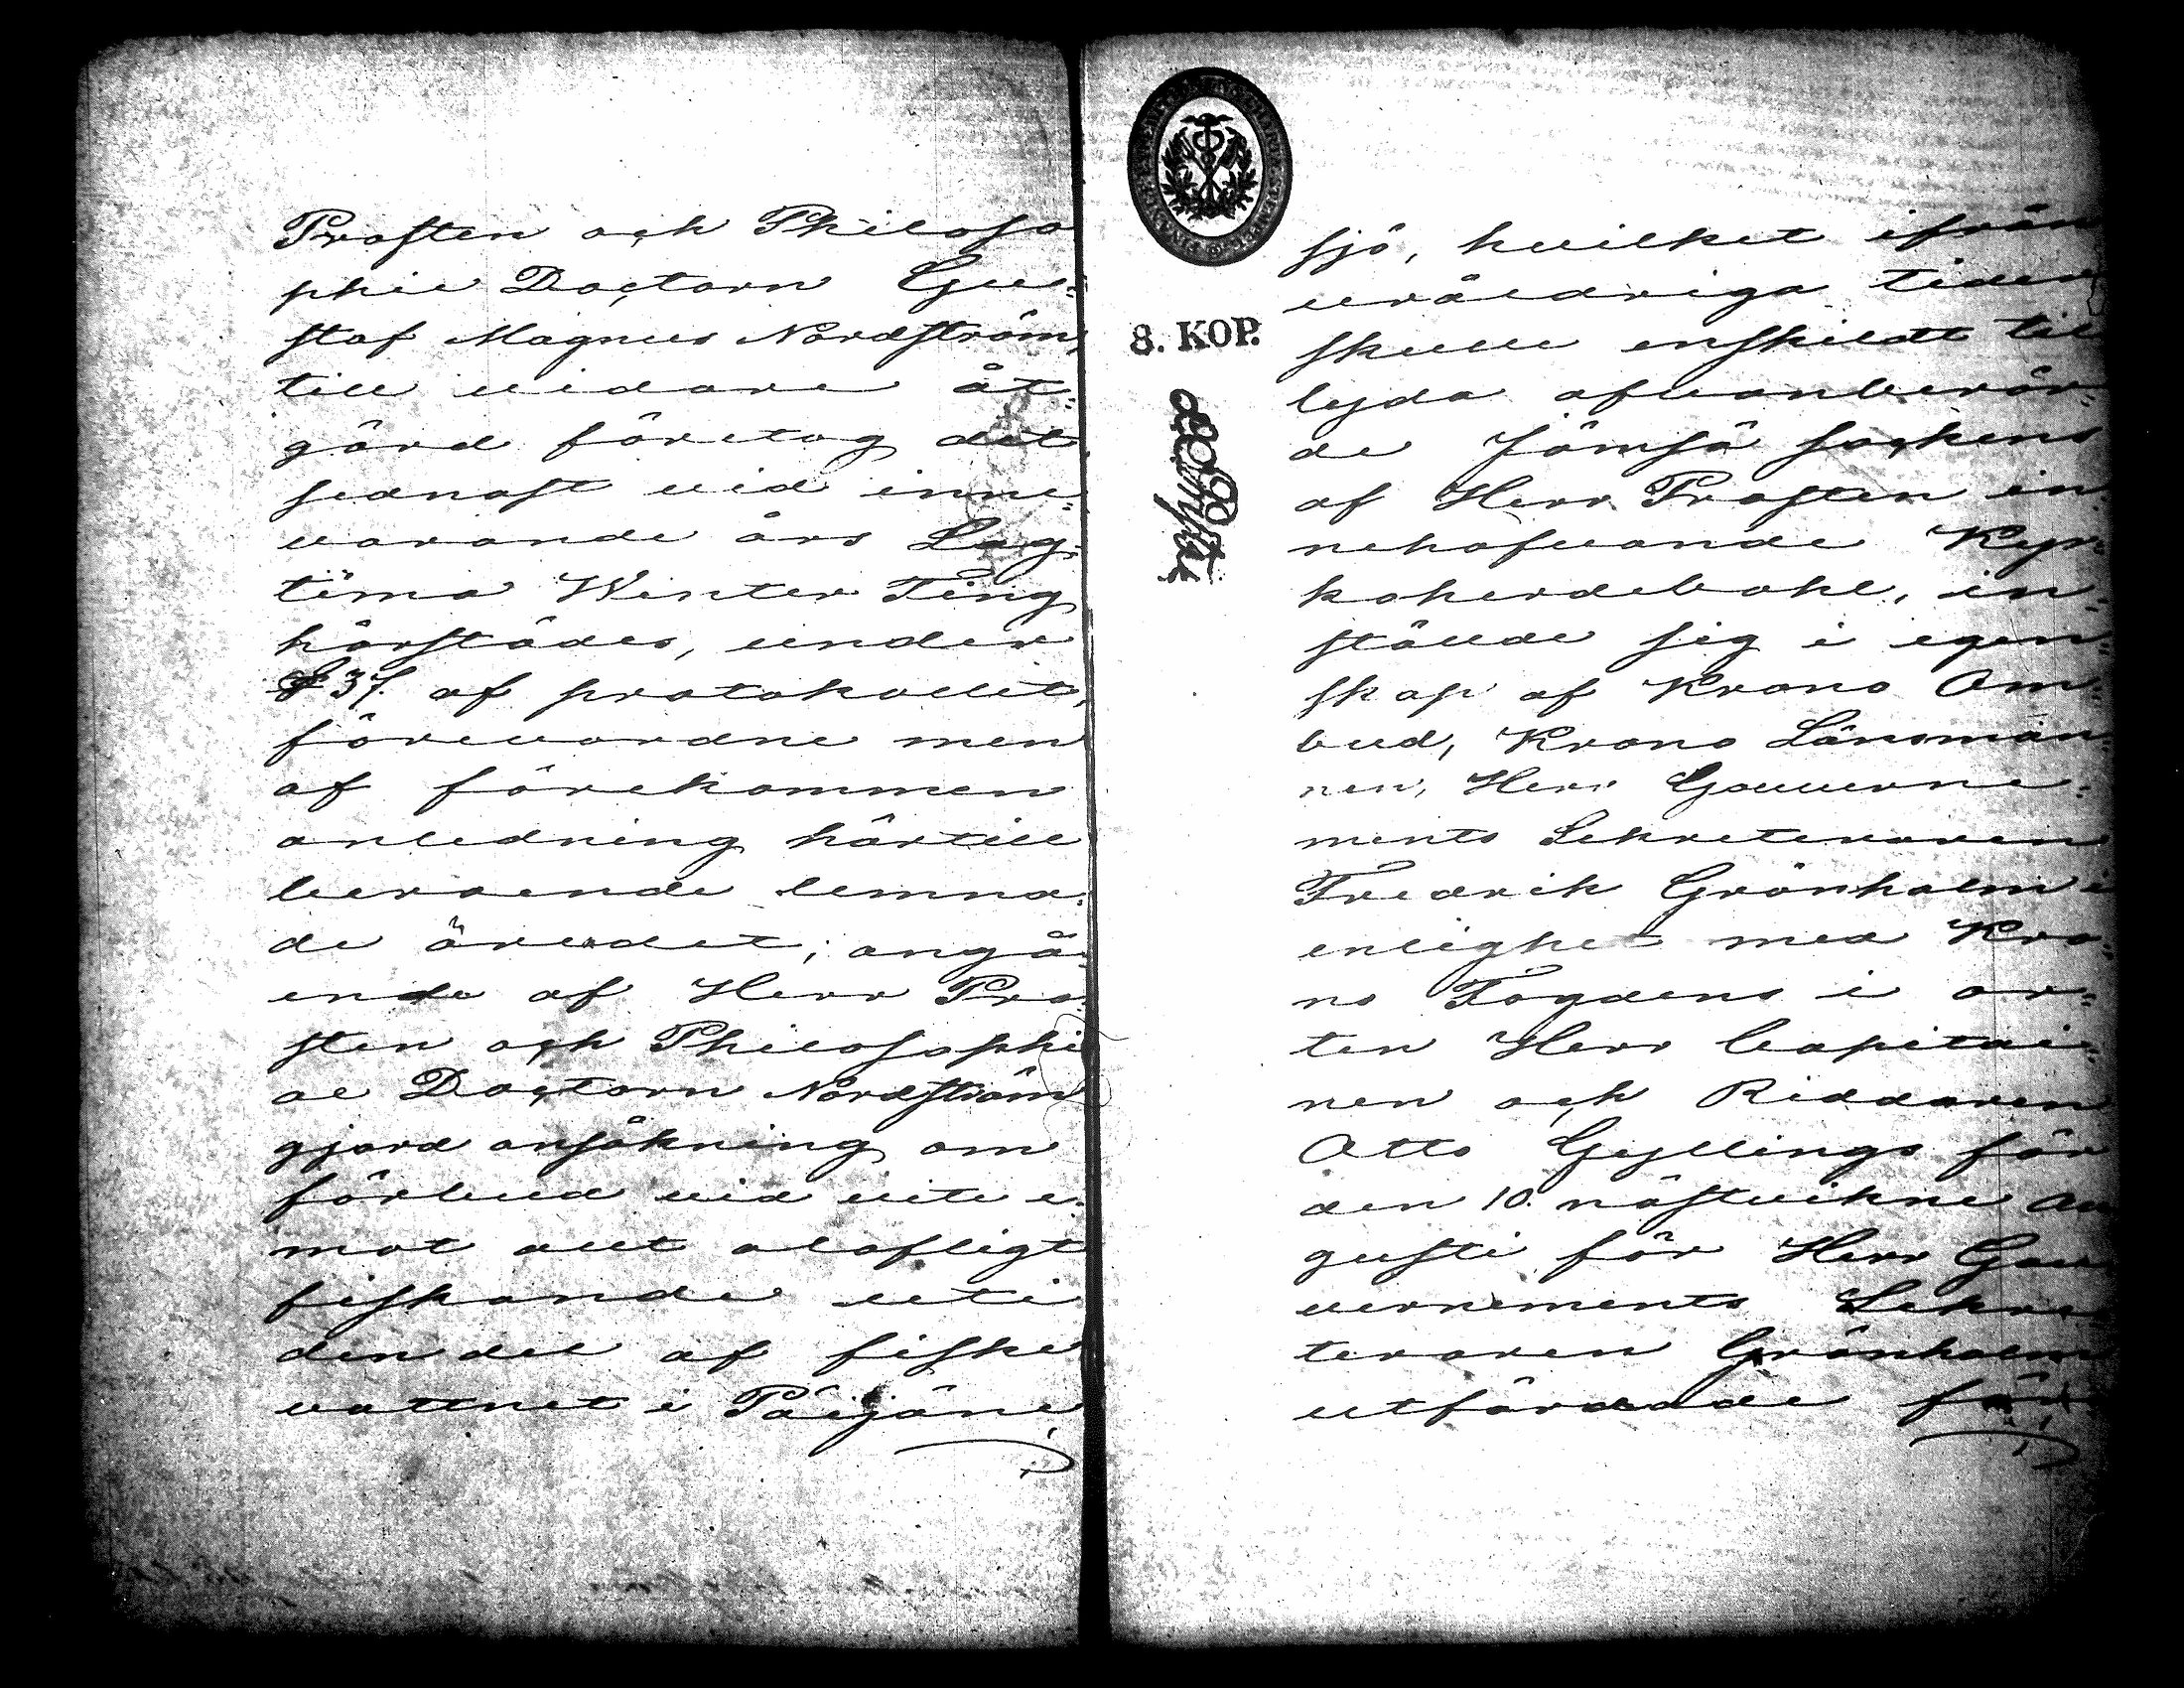 Prosten och Philoso
phie Doctorn Gu=
staf Magnus Nordström,
till vidare åt=
gärd företog det
sednast vid inne=
varande års Lag=
tima Winter Ting
härstädes, under
§ 37. af protokollet,
förevordne men
af förekommen
anledning härtill
beroende lemna=
de ärendet; angå=
ende af Herr Pro=
sten och Philosophi
ae Doctorn Nordström
gjord ansökning om
förbud vid vite e=
mot allt olofligt
fiskande uti
den del af fiske
vattnet i Päijäne
8. KOP.
sjö, hvilket ifrån
uråldriga tider
skulle enskildt till
lyda ofvanberör=
de Jämsä sockens
af Herr Prosten in=
nehafvande Kyr=
koherdebohl, in=
stälde sig i egen=
skap af Krono Om=
bud, Krono Länsman=
nen, Herr Gouverne=
ments Sekreteraren
Fredrik Grönholm i
enlighet med Kro=
no Fogdens i or=
ten Herr Capitai=
nen och Riddaren
Otto Gyllings för
den 10. nästvikne Au
gusti för Herr Gou
vernements Sekre
teraren Grönholm
utfärdade för